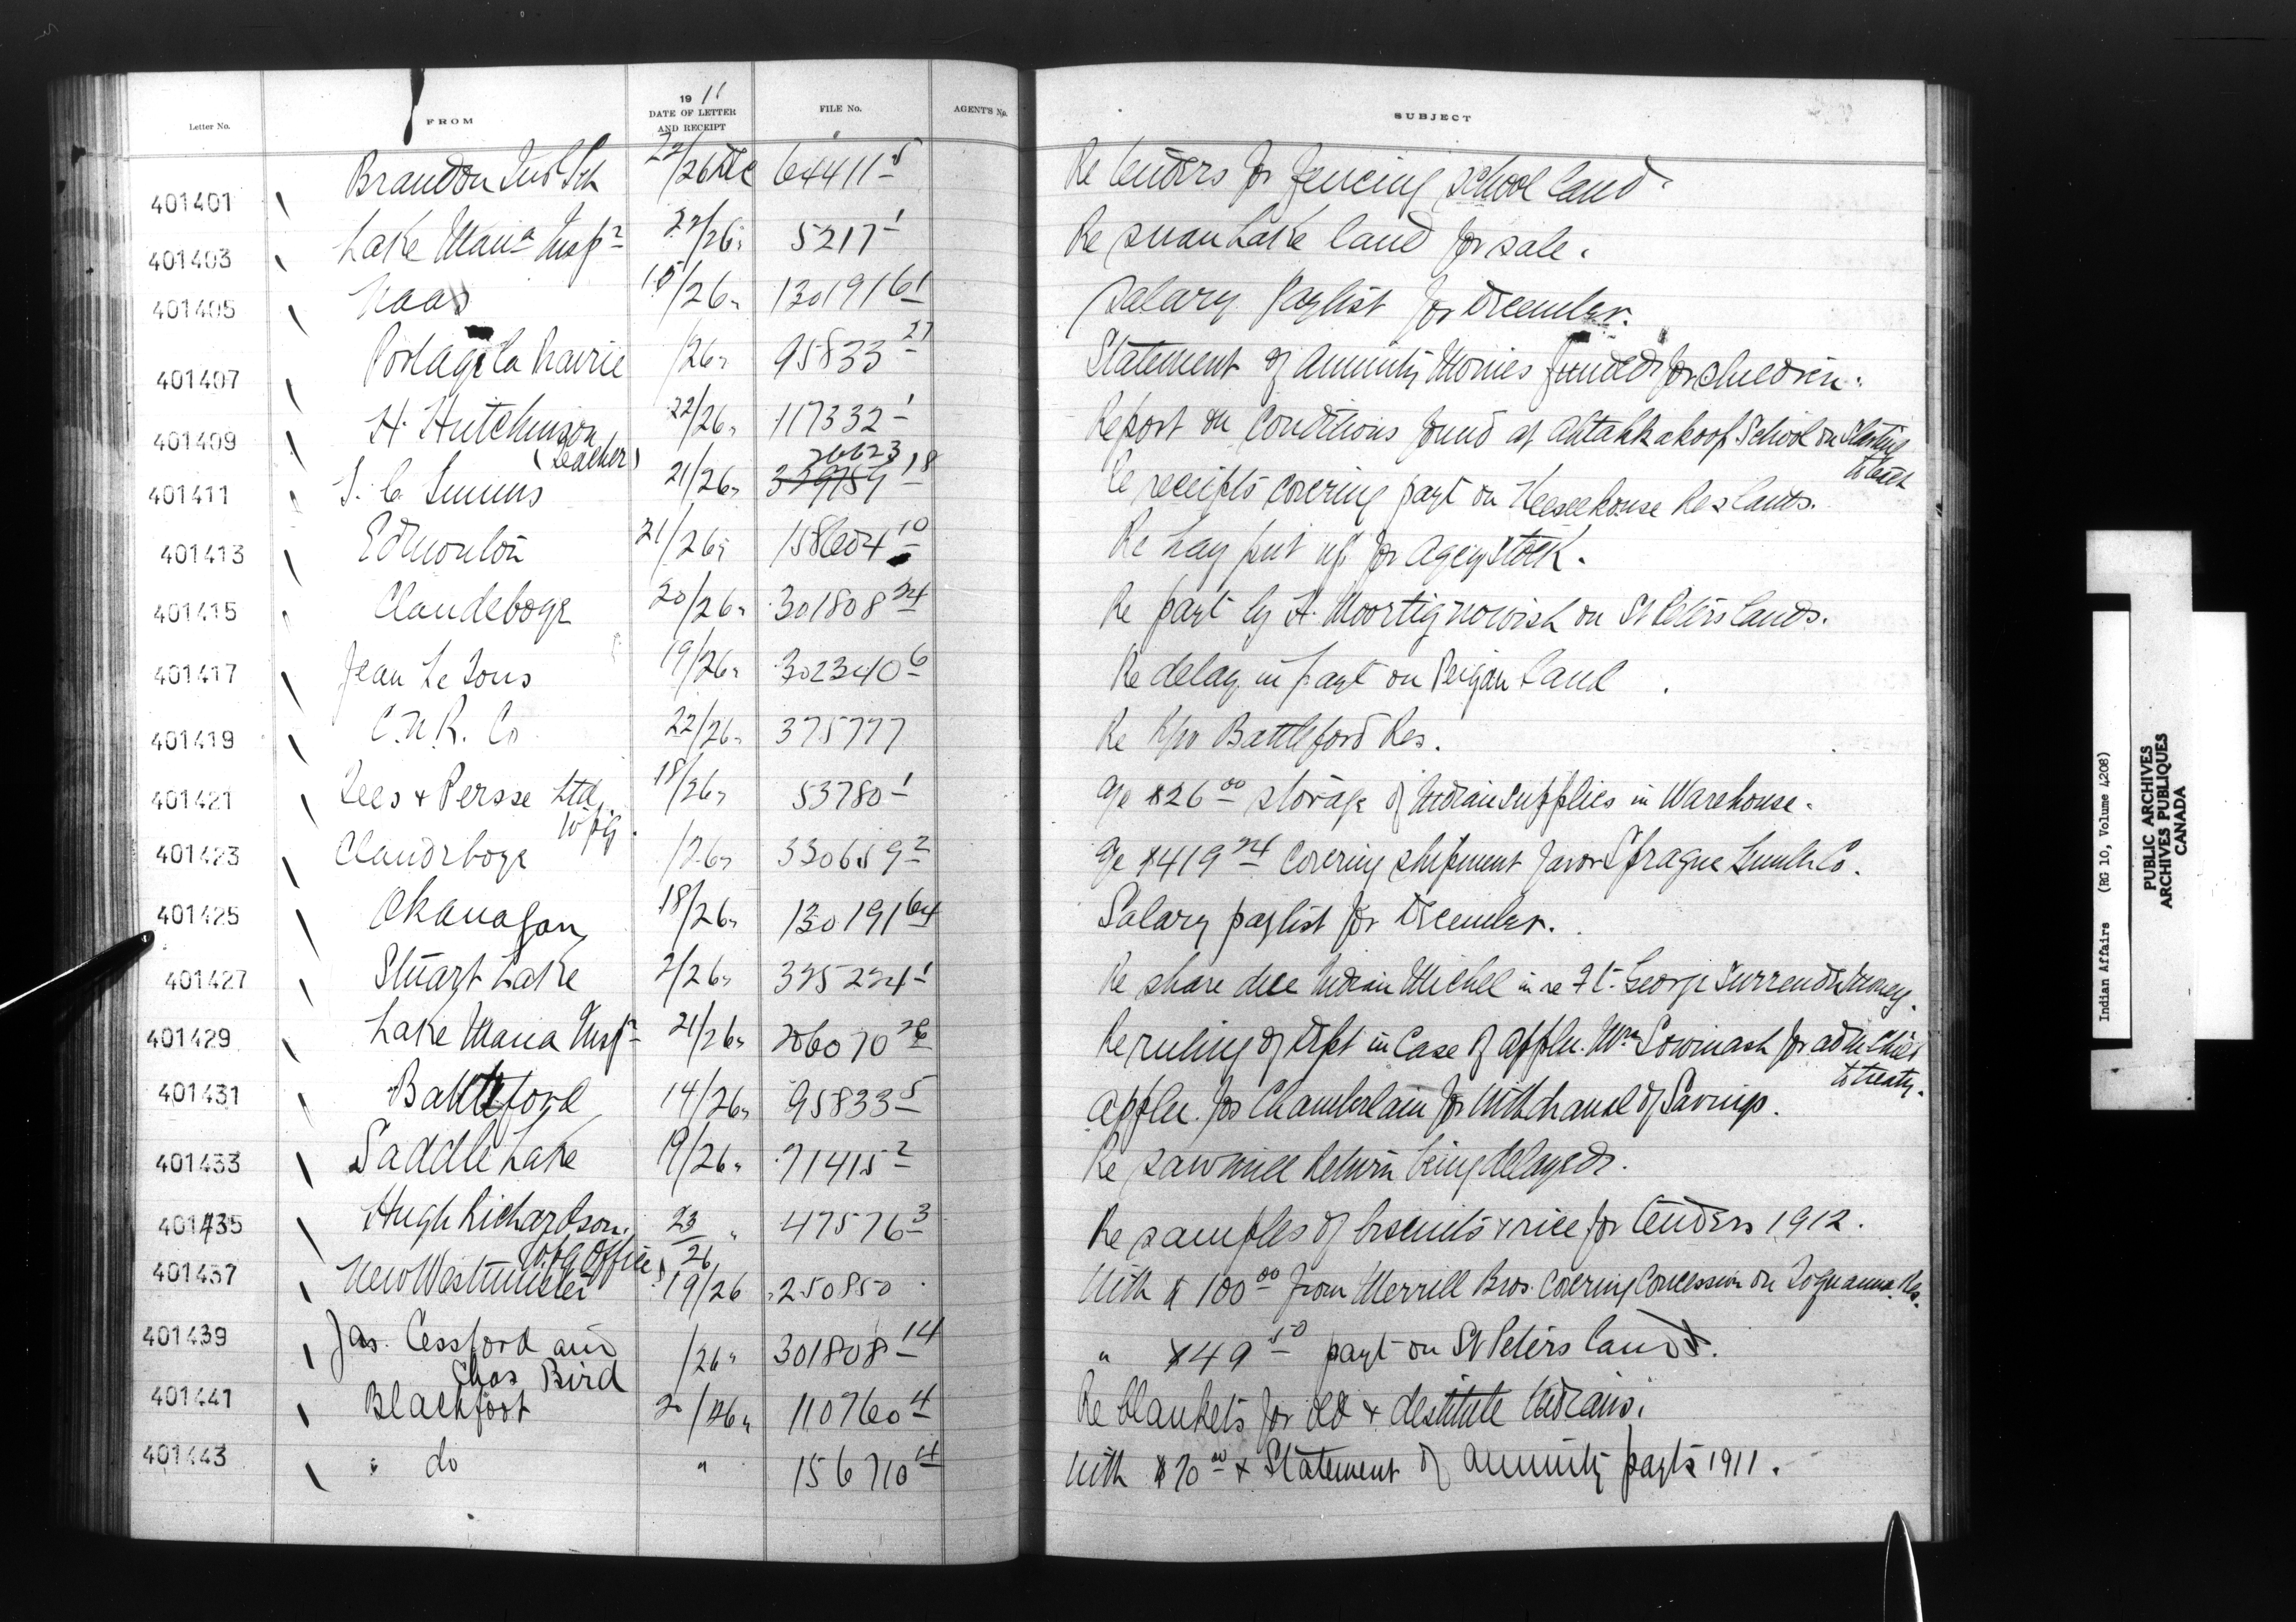 Letter No. FROM 1911 DATE OF LETTER AND RECEIPT FILE No. AGENT'S No. SUBJECT
401401 Brandon Ind Sch 22/26 Dec 64411-5 Re tenders for fencing school land.
401403 Lake Mana Insp 22/26" 5217-1 Re Swan Lake land for sale.
401405 Naas 15/26" 130191-61 Salary Paylist for December.
401407 Portage la Prairie /26" 95833-27 Statement of Annuity Monies funded for children.
401409 H. Hutchinson (teacher) 22/26" 117332-1 Report on Conditions found at Ahtahkakoop School on Starting to teach
401411 21/26" 26623 18 Re receipts covering payt on Keeseekouse Res lands.
401413 Edmonton 21/26" 158604-10 Re hay put up for Agcy Stock.
401415 Clandeboye 20/26" 301808-24 Re payt by A. on St Peters lands.
401417 Jean Le 19/26" 302340-6 Re delay in payt on Peigan Land.
401419 C.N.R. Co 22/26" 375777 Re R/w Battleford Res.
401421 Tees & Persse Ltd. Wpg. 18/26" 53780-1 a/c $26.00 storage of Indian supplies in Warehouse.
401423 Clandeboye /26" 330659-2 a/c $419.24 Covering shipment favor Sprague Lumber Co.
401425 Okanagan 18/26" 130191-64 Salary paylist for December.
401427 Stuart Lake 2/26" 325224-1 Re share due Indian Michel in re Ft. George Surrender Money.
401429 Lake Mana Insp 21/26" 206070 Re ruling of Dept in Case of appln. Wm for adm Chief to treaty.
401431 Battleford 14/26" 95833-5 Appln. for Chamberlain for Withdrawal of Savings.
401433 Saddle Lake 19/26" 71415-2 Re sawmill Return being delayed.
401435 Hugh Richardson. Wpg Office 23/26 " 47576-3 Re samples of biscuits & rice for tenders 1912.
401437 New Westminster 19/26 250850 With $100.00 from Merrill Bros. Covering Concession on Res.
401439 Jas. Cessford and Chas Bird /26" 301808-14 " $49.50 payt on St Peters land.
401441 Blackfoot 20/26" 110760-4 Re blankets for old & destitute Indians.
401443 " do " 156710-4 With $70.00 & Statement of annuity payts 1911.
Indian Affairs (RG 10, Volume 4208)
PUBLIC ARCHIVES
ARCHIVES PUBLIQUES
CANADA